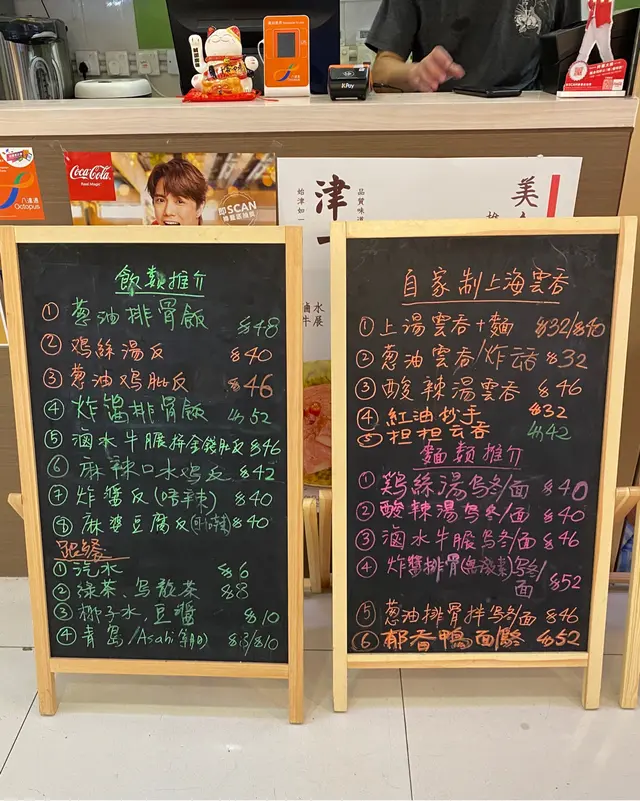 Coca-Cola
Real Magic
八達通
Octopus
即SCAN
KPay
津
始津如一
品質味道
美
滷水
牛展
飲類推介
① 蔥油排骨飯 $48
② 鸡絲湯反 $40
③ 蔥油鸡肶反 $46
④ 炸醬排骨飯 $52
⑤ 滷水牛脤拼金錢肚反 $46
⑥ 麻辣口水鸡反 $42
⑦ 炸醬反(唔辣) $40
⑧ 麻婆豆腐反 $40
① 汽水 $6
② 綠茶、烏龍茶 $8
③ 椰子水、豆醬 $10
④ 青島/Asahi $13/$10
自家制上海雲吞
① 上湯雲吞+麵 $32/$40
② 蔥油雲吞/炸云吞 $32
③ 酸辣湯雲吞 $46
④ 紅油抄手 $32
⑤ 担担云吞 $42
麵類推介
① 鷄絲湯烏冬/面 $40
② 酸辣湯烏冬/面 $40
③ 滷水牛脤烏冬/面 $46
④ 炸醬排骨烏冬/
面 $52
⑤ 蔥油排骨拌烏冬/面 $46
⑥ 郁香鴨面 $52